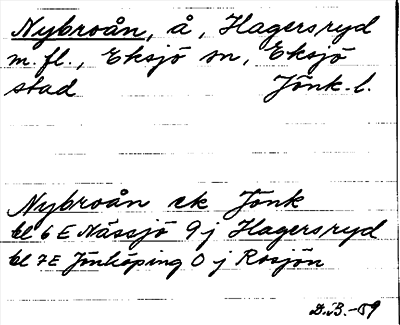 Nybroån, å, Hagersryd
m.fl., Eksjö sn, Eksjö
stad Jönk. l.
Nybroån ek Jönk
bl 6 E Nässjö 9 j Hagersryd
bl 7 E Jönköping 0 j Rosjön
G.B.-59